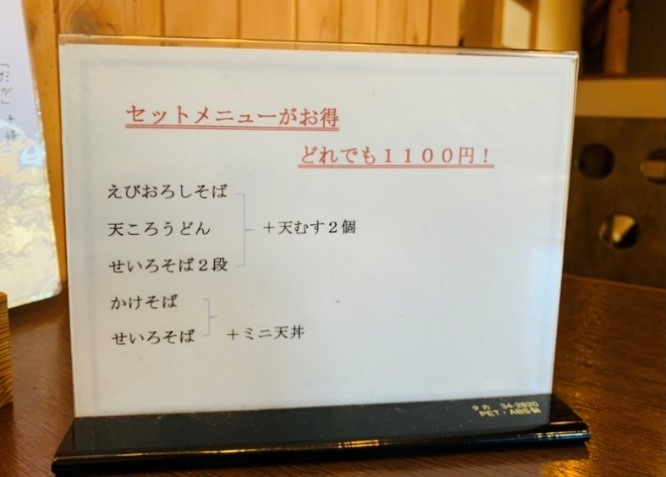 セットメニューがお得
どれでも１１００円！
えびおろしそば
天ころうどん
せいろそば２段
＋天むす２個
かけそば
せいろそば
＋ミニ天丼
タカ 34-2820
PET・ABS製
「だが」